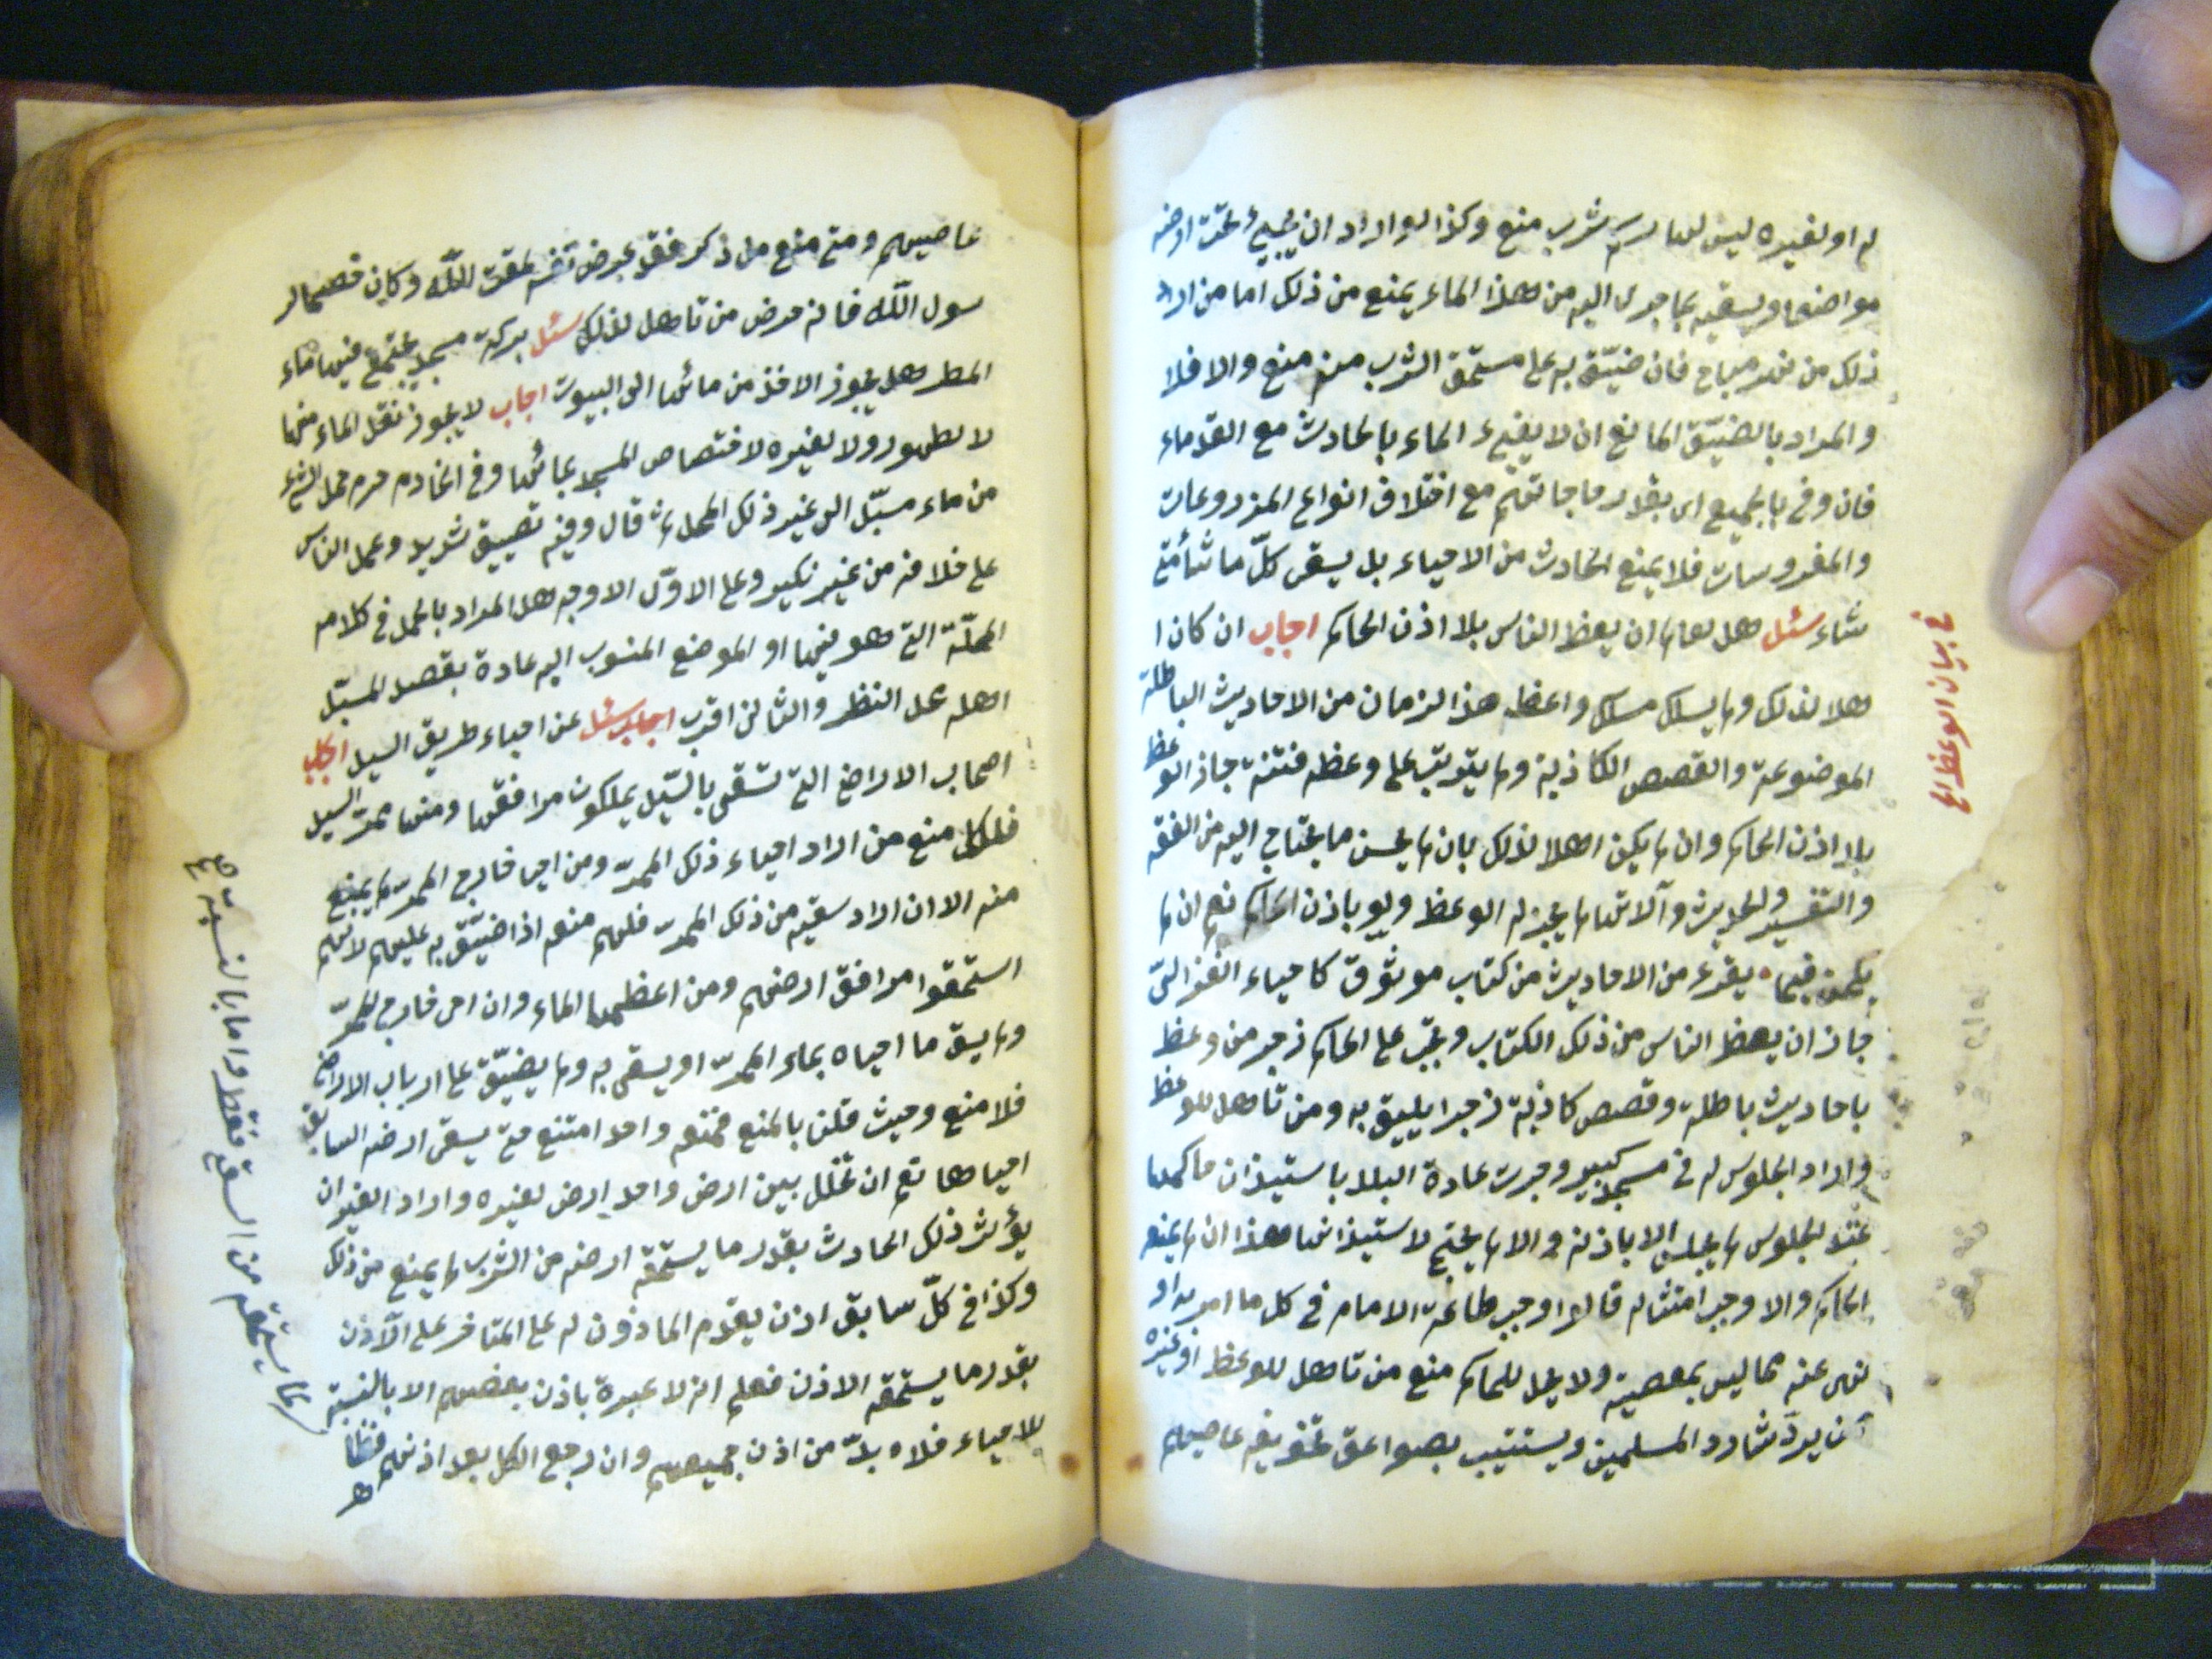 له او لغيره ليس لها رسم شرب منع وكذا لو اراد ان يحيى تحت ارضه
مواضعا ويسقيه بما جرى اليه من هذا الماء يمنع من ذلك اما من اراد
ذلك من نهر مباح فان ضيّق به على مستحق الشرب منه منع والا فلا
والمراد بالضيّق المانع ان لا يفيء الماء بالحادث مع القدماء
فان وفى بالجميع اى بقدر حاجاتهم مع اختلاف انواع المزروعات
والمغروسات فلا يمنع الحادث من الاحياء بل يسقى كلّ ما شأ متى
شاء سئل هل لعالم ان يعظ الناس بلا اذن الحاكم اجاب ان كان ا
هلا لذلك ولم يسلك مسلك واعظ هذا الزمان من الاحاديث الباطلة
الموضوعة والقصص الكاذبة ولم يترتب على وعظه فتنة جاز الوعظ
بلا اذن الحاكم وان لم يكن اهلا لذلك بان لم يحسن ما يحتاج اليه من الفقه
والتفسير والحديث وآلاتها لم يجز له الوعظ ولو باذن الحاكم نعم ان لم
يلحن فيما يقرء من الاحاديث من كتاب موثوق كاحياء الغزالى
جاز ان يعظ الناس من ذلك الكتاب ويجب على الحاكم زجر من وعظ
باحاديث باطلة وقصص كاذبة زجرا يليق به ومن تاهل للوعظ
واراد الجلوس له فى مسجد كبير وجرت عادة البلد باستيذان حاكمها
عند الجلوس لم يجلس الا باذنه والا لم يحتج لاستيذانها هذا ان لم يمنعه
الحاكم والا وجب امتثاله قالوا وجب طاعة الامام فى كل ما امر به او
نهى عنه مما ليس بمعصية ولا يحل للحاكم منع من تاهل للوعظ او غيره
ان يردّ شارد المسلمين ويستتيب بصواعق تخويفه عاصيهم
فى بيان الوعظ الخ
عاصيهم ومتى منع من ذكر فقد عرض نفسه لمقت اللّه وكان خصمه الر
سول اللّه فانه فرض من تاهل لذلك سئل بركة مسجد يجتمع فيها ماء
المطر هل يجوز الاخذ من مائها الى البيوت اجاب لا يجوز نقل الماء منها
لا لطهور ولا لغيره لاختصاص المسجد بمائها وفى الخادم حرم حمل الشىء
من ماء مسبّل الى غير ذلك المحل ثم قال وفيه تضييق شديد وعمل الناس
على خلافه من غير نكير وعلى الاوّل الاوجه هل المراد بالمحل فى كلامه
المحلّة التى هو فيها او الموضع المنسوب اليه عادة بقصد المسبّل
اهله محل النظر والثانى اقرب اجاب سئل عن احياء طريق السيل اجاب
اصحاب الاراضى التى تسقى بالسّيل يملكون مرافقها ومنها ممرّ السيل
فلكل منع من اراد احياء ذلك الممرّ ومن احيى خارج الممرّ لم يمنع
منه الا ان اراد سقيه من ذلك الممرّ فلهم منعه اذا ضيّق به عليهم لانهم
استحقوا مرافق ارضهم ومن اعظمها الماء وان احى خارج الممرّ
ولم يسق ما احياه بماء الممرّ او يسقى به ولم يضيّق على ارباب الاراضى
فلا منع وحيث قلنا بالمنع فمنعه واحد امتنع حتى يسقى ارضه السابق
احياها نعم ان تخلل بين ارض واحد ارض لغيره واراد الغير ان
يؤثر ذلك الحادث بقدر ما يستحقه ارضه من الشرب لم يمنع من ذلك
وكذا فى كلّ سابق اذن يقدم الماذون له على المتاخر على الآذن
بقدر ما يستحقه الاذن فعلم انه لا عبرة باذن بعضهم الا بالنسبة
للاحياء فلا بدّ من اذن جميعهم وان رجع الكل بعد اذنهم
لما يستحقه من السقى فقط واما بالنسبة